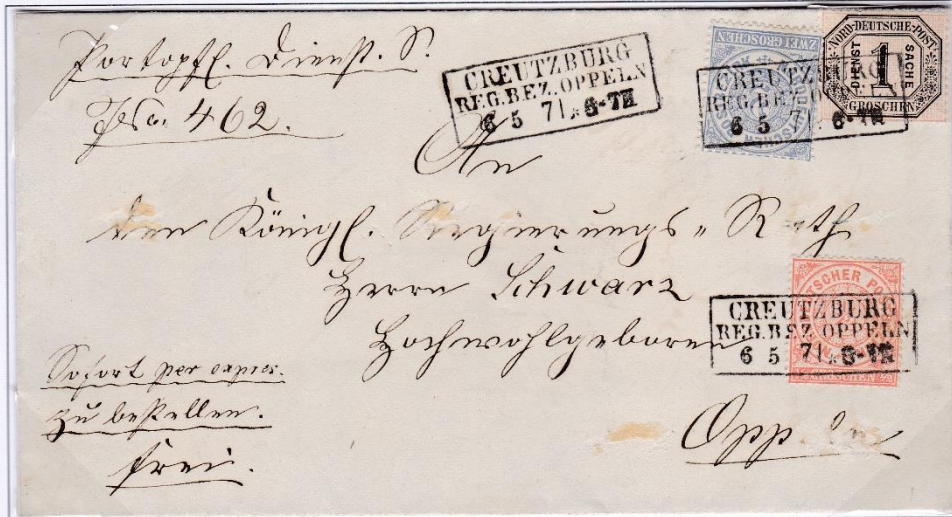 Portopfl. Dienst S.
462.
CREUTZBURG
REG.BEZ.OPPELN
6 5 71 6-7N
ZWEI GROSCHEN
CREUTZBURG
REG.BEZ
6 5 71 6-7N
NORD-DEUTSCHE-POST
DIENST 1 SACHE
GROSCHEN
An
den Königl. Regierungs-Rath
Herrn Schwarz
Hochwohlgeboren
CREUTZBURG
REG.BEZ.OPPELN
6 5 71 6-7N
Sofort per express.
zu bestellen.
frei.
Oppeln